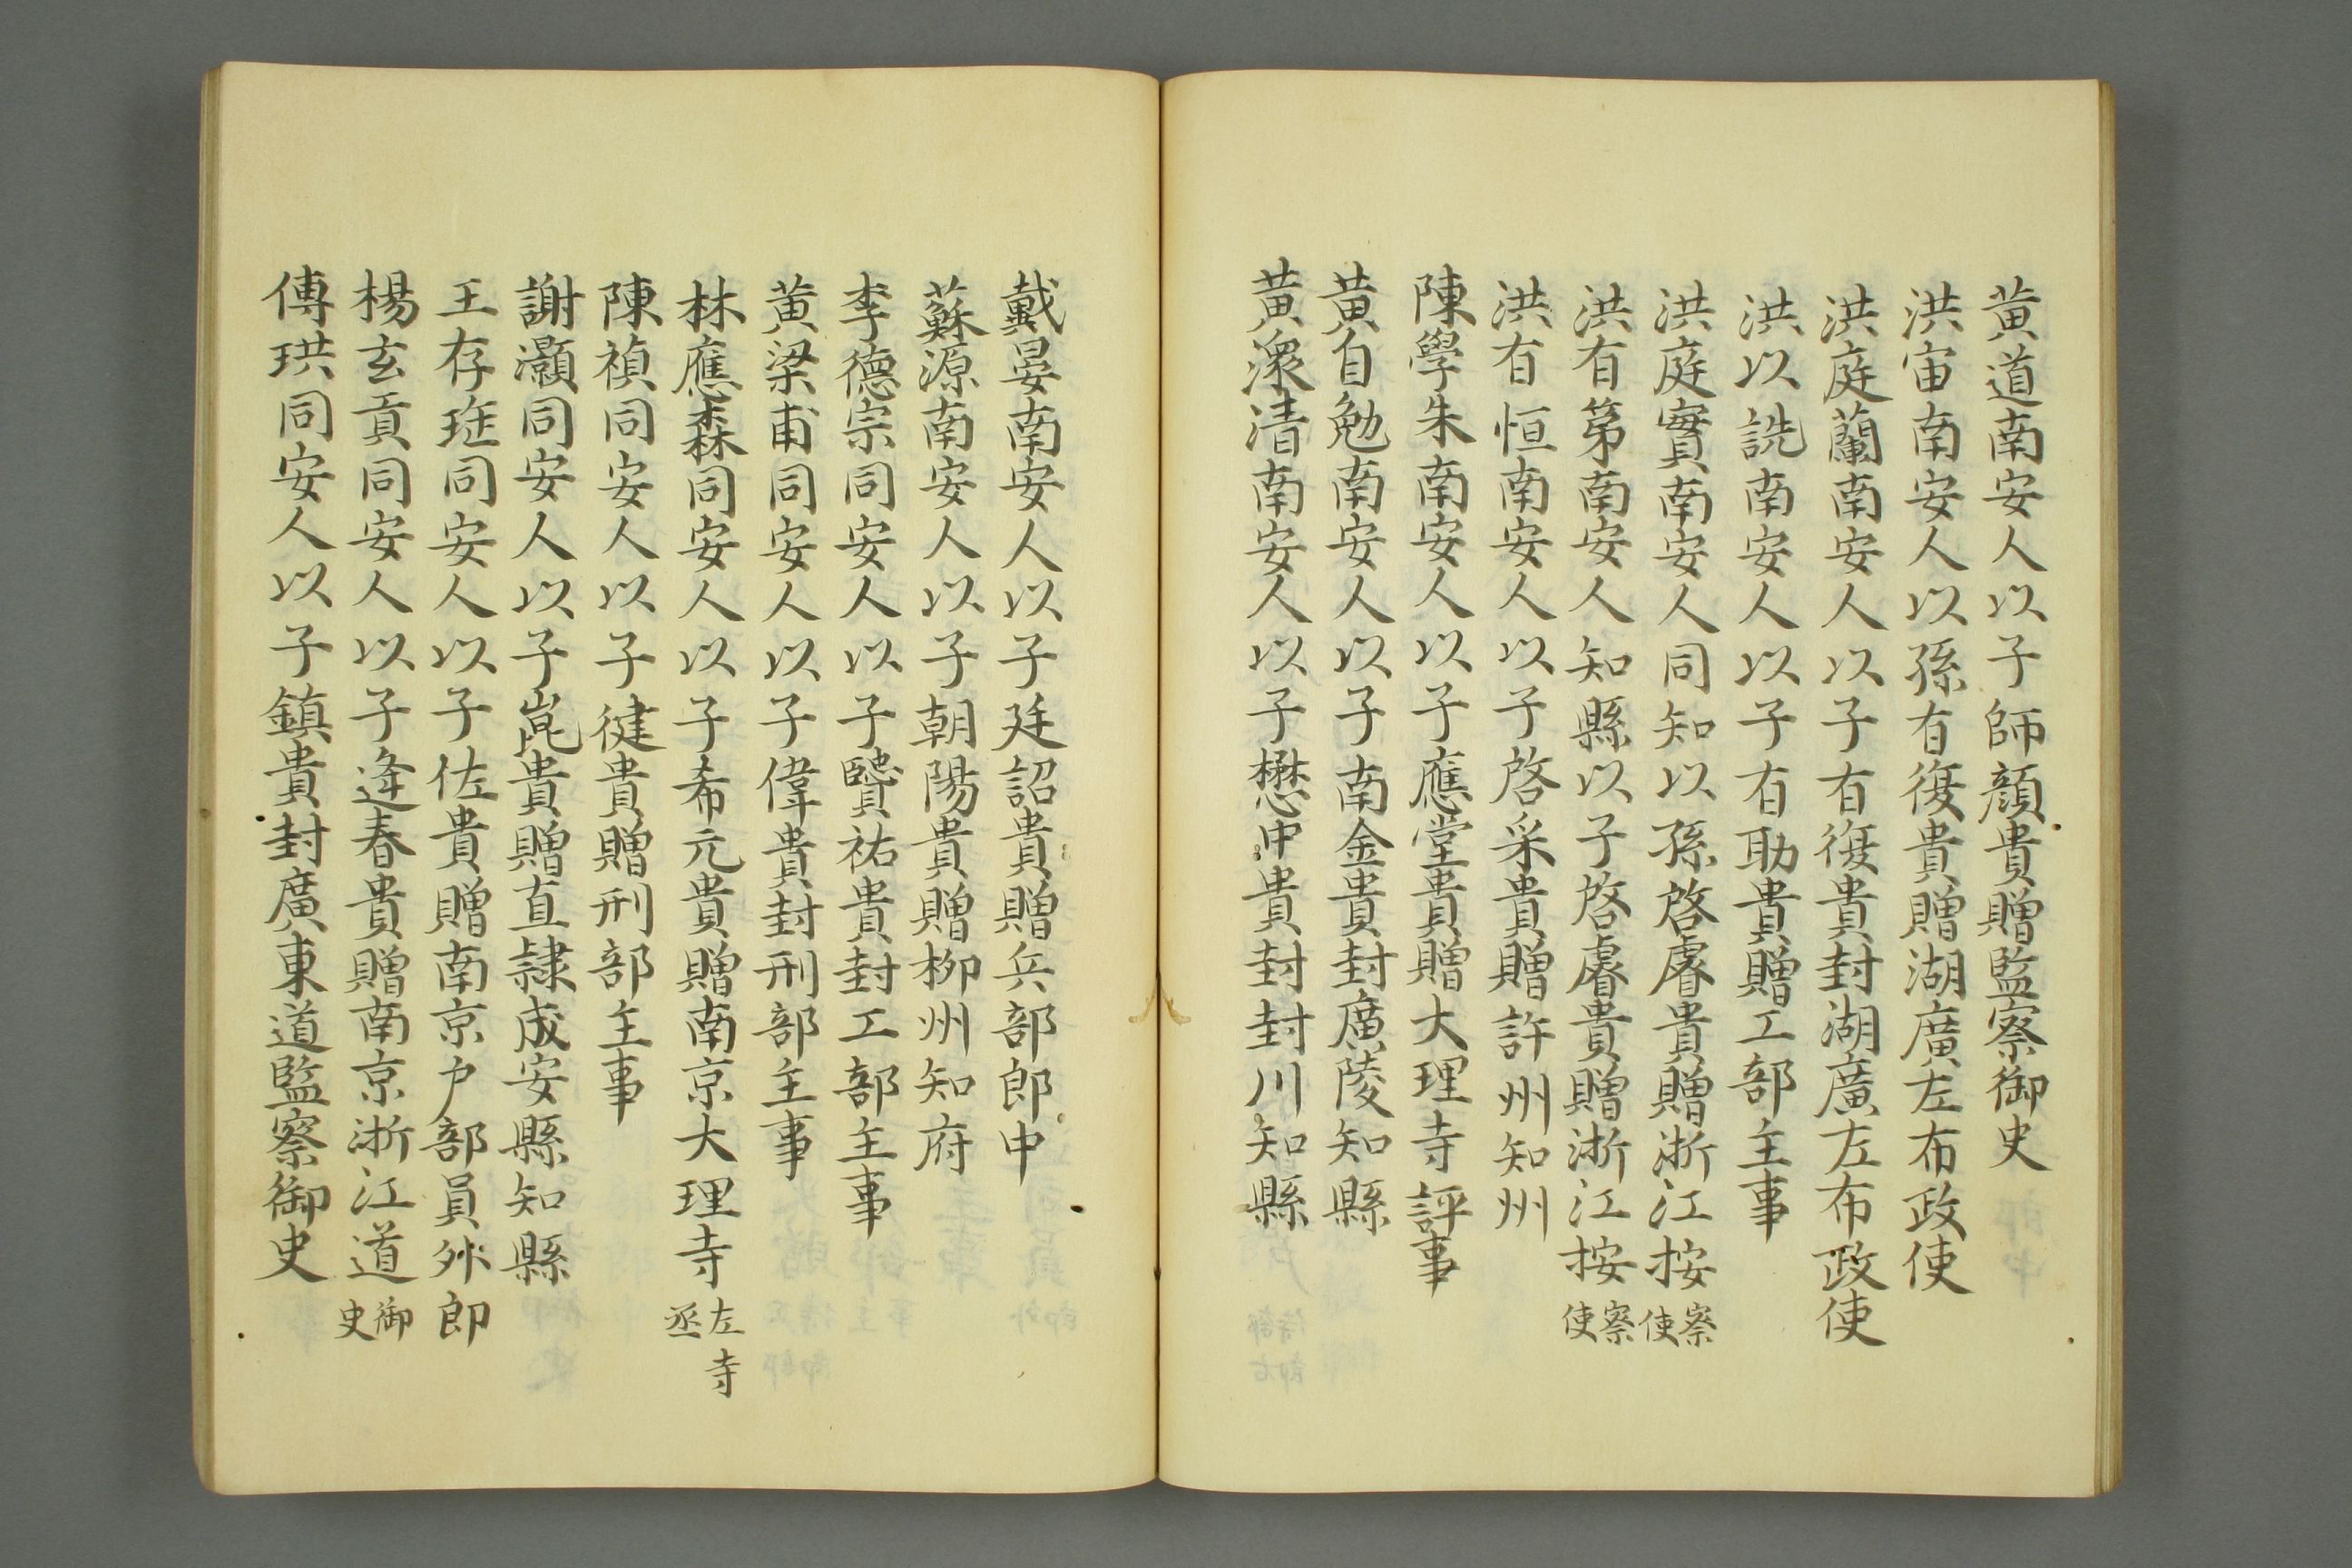 黄道南安人以子師顔貴贈監察御史
洪宙南安人以孫有復貴贈湖廣左布政使
洪庭蘭南安人以子有復貴封湖廣左布政使
洪以詵南安人以子有助貴贈工部主事
洪庭實南安人同知以孫啓睿貴贈浙江按察使
洪有第南安人知縣以子啓睿貴贈浙江按察使
洪有恒南安人以子啓采貴贈許州知州
陳學朱南安人以子應堂貴贈大理寺評事
黄自勉南安人以子南金貴封廣陵知縣
黄濴清南安人以子懋中貴封封川知縣
戴晏南安人以子廷詔貴贈兵部郎中
蘇源南安人以子朝陽貴贈柳州知府
李德宗同安人以子賢祐貴封工部主事
黄梁甫同安人以子偉貴封刑部主事
林應森同安人以子希元貴贈南京大理寺左寺丞
陳禎同安人以子健貴贈刑部主事
謝灝同安人以子崑貴贈直隸成安縣知縣
王存同安人以子佐貴贈南京户部員外郎
楊玄貢同安人以子逢春貴贈南京浙江道御史
傅珙同安人以子鎮貴封廣東道監察御史